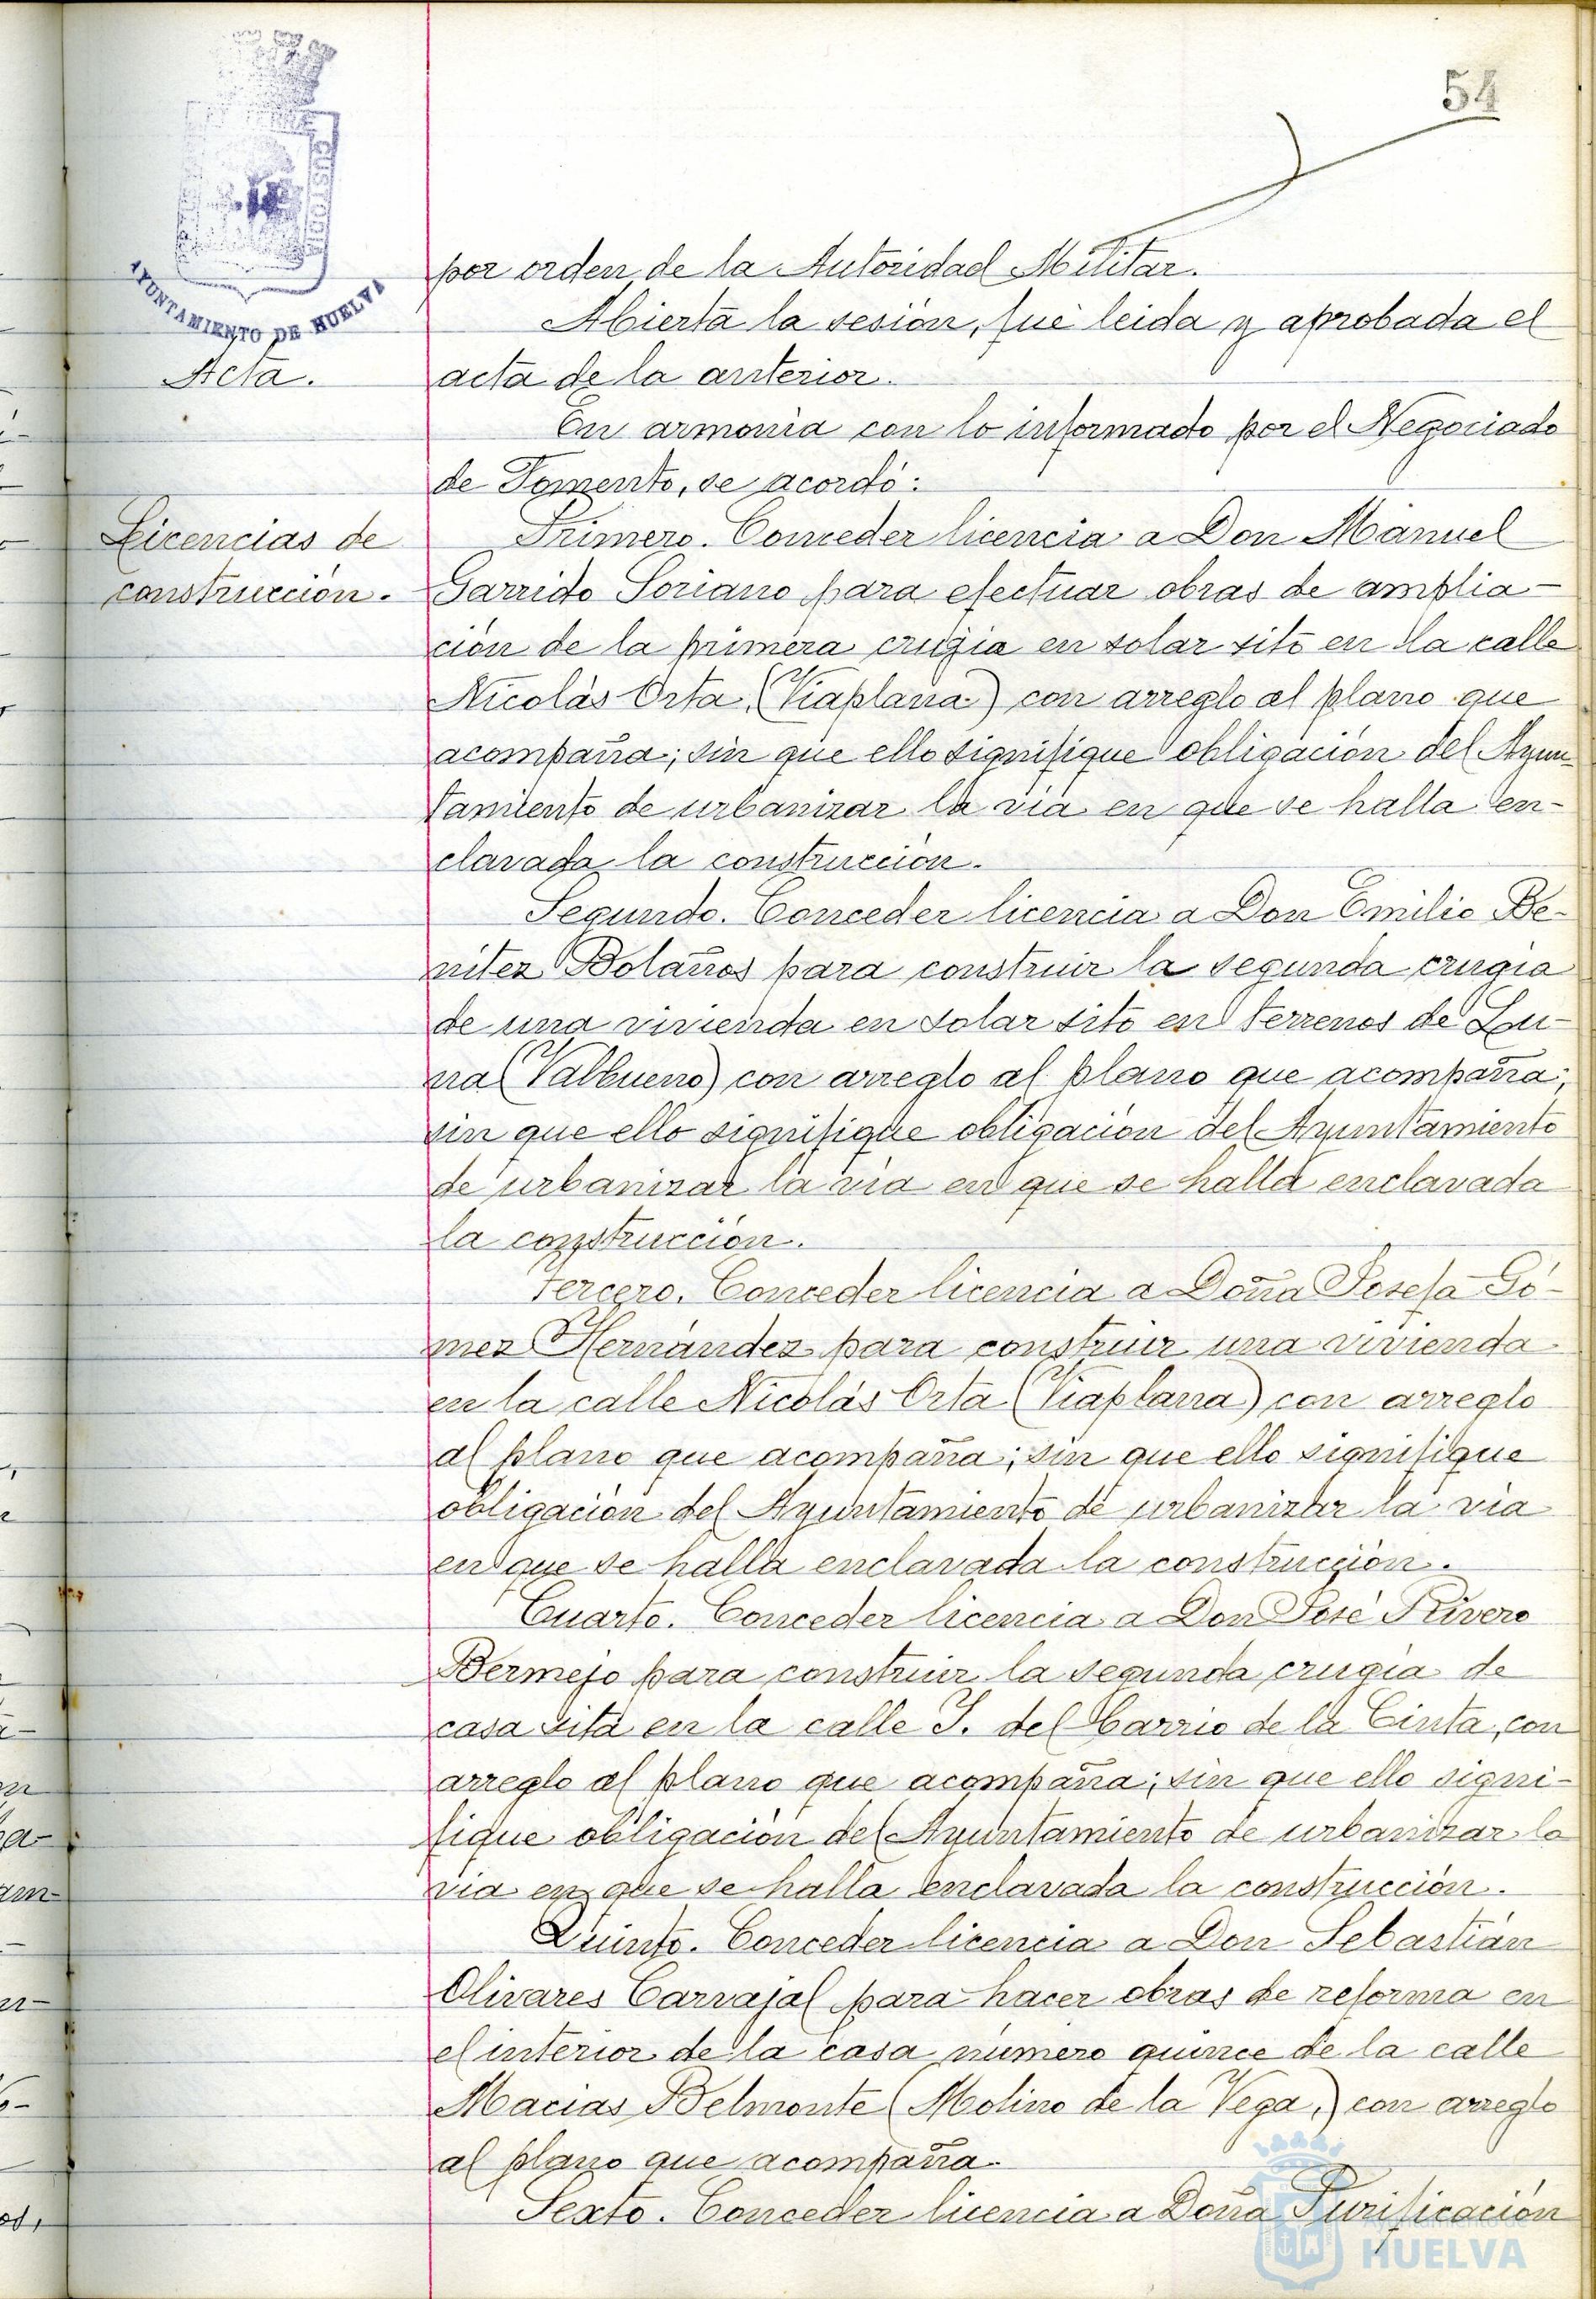 54
CUSTODIA
AYUNTAMIENTO DE HUELVA
por orden de la Autoridad Militar.
Abierta la sesión, fué leida y aprobada el
Acta.
acta de la anterior.
En armonía con lo informado por el Negociado
de Fomento, se acordó:
Licencias de
construcción.
Primero. Conceder licencia a Don Manuel
Garrido Soriano para efectuar obras de amplia-
ción de la primera crugia en solar sito en la calle
Nicolás Orta (Viaplana) con arreglo al plano que
acompaña; sin que ello signifique obligación del Ayun-
tamiento de urbanizar la via en que se halla en-
clavada la construcción.
Segundo. Conceder licencia a Don Emilio Be-
nitez Bolaños para construir la segunda crugia
de una vivienda en solar sito en terrenos de Lu-
na (Valbueno) con arreglo al plano que acompaña;
sin que ello signifique obligación del Ayuntamiento
de urbanizar la via en que se halla enclavada
la construcción.
Tercero. Conceder licencia a Doña Josefa Gó-
mez Hernández para construir una vivienda
en la calle Nicolás Orta (Viaplana) con arreglo
al plano que acompaña; sin que ello signifique
obligación del Ayuntamiento de urbanizar la via
en que se halla enclavada la construcción.
Cuarto. Conceder licencia a Don José Rivero
Bermejo para construir la segunda crugia de
casa sita en la calle J. del barrio de la Cinta, con
arreglo al plano que acompaña; sin que ello signi-
fique obligación del Ayuntamiento de urbanizar la
via en que se halla enclavada la construcción.
Quinto. Conceder licencia a Don Sebastián
Olivares Carvajal para hacer obras de reforma en
el interior de la casa número quince de la calle
Macias Belmonte (Molino de la Vega,) con arreglo
al plano que acompaña.
Sexto. Conceder licencia a Doña Purificación
Ayuntamiento de
HUELVA